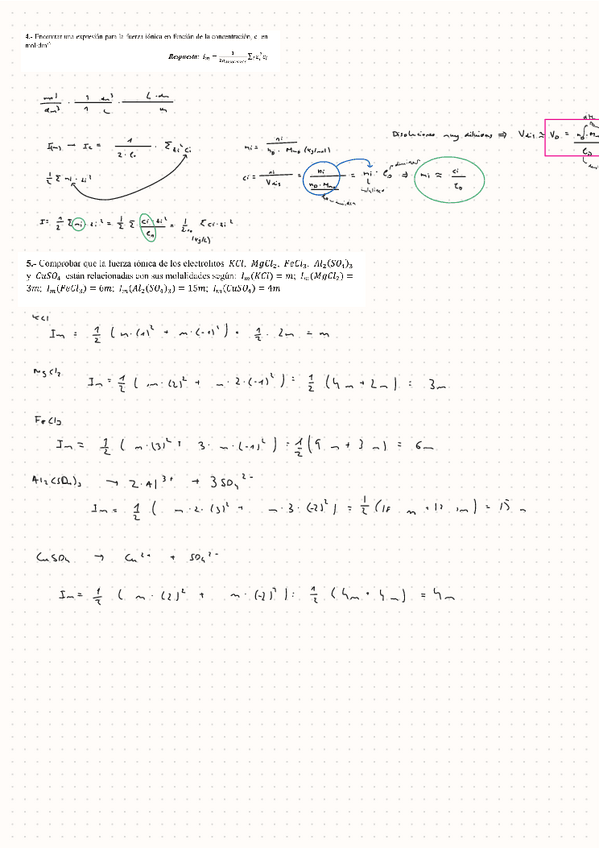 4.- Encontrar una expresión para la fuerza iónica en función de la concentración, c en
mol·dm⁻³
Respuesta: Iₘ =
I(m) → Ic = 1 / 2·ρ₀ · Σ zi² ci
1/2 Σ mi · zi²
mi = ni / n₀ · Mm₀ (kg/mol)
Disoluciones muy diluidas ⇒ Vdis ≈ V₀ =
ci = ni / Vdis = = mi · ρ₀ ⇒ mi ≈ ci / ρ₀
I = 1/2 Σ mi · zi² = 1/2 Σ ci · zi² / ρ₀ = Σ ci · zi²
(kg/L)
5.- Comprobar que la fuerza iónica de los electrolitos KCl, MgCl₂, FeCl₃, Al₂(SO₄)₃
y CuSO₄ están relacionadas con sus molalidades según: Iₘ(KCl) = m; Iₘ(MgCl₂) =
3m; Iₘ(FeCl₃) = 6m; Iₘ(Al₂(SO₄)₃) = 15m; Iₘ(CuSO₄) = 4m
KCl
Im = 1/2 ( m·(1)² + m·(-1)² ) = 1/2 · 2m = m
MgCl₂
Im = 1/2 ( m·(2)² + m·2·(-1)² ) = 1/2 (4m + 2m) = 3m
FeCl₃
Im = 1/2 ( m·(3)² + 3·m·(-1)² ) = 1/2 (9m + 3m) = 6m
Al₂(SO₄)₃ → 2·Al³⁺ + 3SO₄²⁻
Im = 1/2 ( m·2·(3)² + m·3·(-2)² ) = 1/2 (18m + 12m) = 15m
CuSO₄ → Cu²⁺ + SO₄²⁻
Im = 1/2 ( m·(2)² + m·(-2)² ) = 1/2 (4m + 4m) = 4m